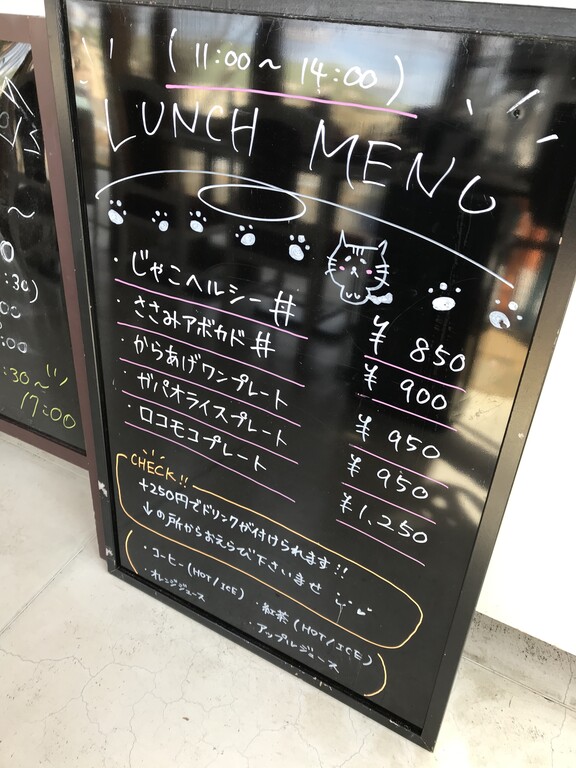 (11:00～14:00)
LUNCH MENU
・じゃこヘルシー丼 ¥850
・ささみアボカド丼 ¥900
・からあげワンプレート ¥950
・ガパオライスプレート ¥950
・ロコモコプレート ¥1,250
CHECK!!
+250円でドリンクが付けられます!!
↓の所からおえらび下さいませ
・コーヒー(HOT/ICE) ・紅茶(HOT/ICE)
・オレンジジュース ・アップルジュース
:30)
:00
:30～
17:00